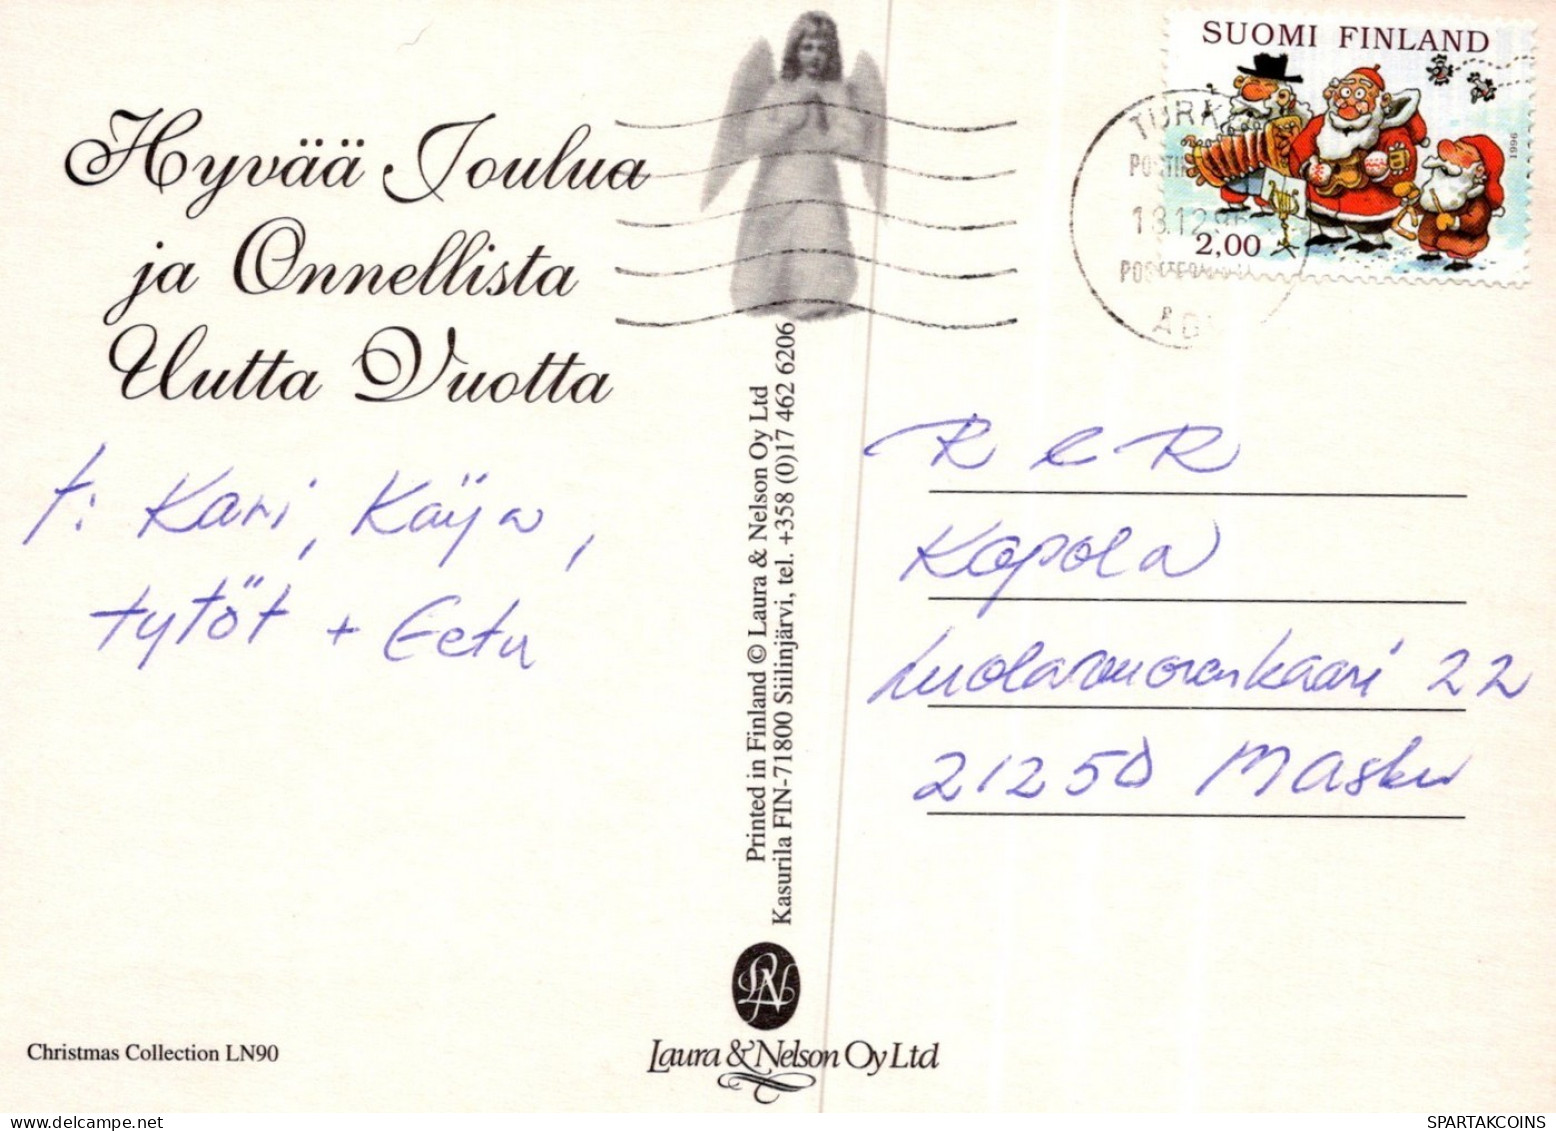 SUOMI FINLAND
1996
2,00
TURK
13.12.96
Hyvää Joulua
ja Onnellista
Uutta Vuotta
t: Kari, Kaija,
tytöt + Eetu
Printed in Finland © Laura & Nelson Oy Ltd
Kasurila FIN-71800 Siilinjärvi, tel. +358 (0)17 462 6206
R & R
Kopola
Luolavuorenkaari 22
21250 Masku
LN
Laura & Nelson Oy Ltd
Christmas Collection LN90
SPARTAKCOINS